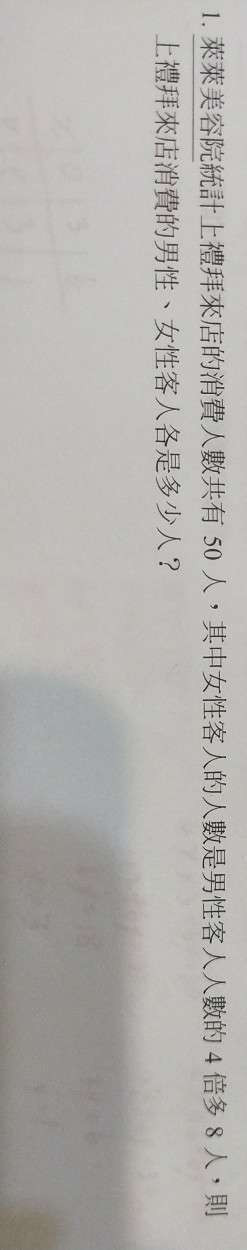 1. 萊萊美容院統計上禮拜來店的消費人數共有 50 人，其中女性客人的人數是男性客人人數的 4 倍多 8 人，則
上禮拜來店消費的男性、女性客人各是多少人？